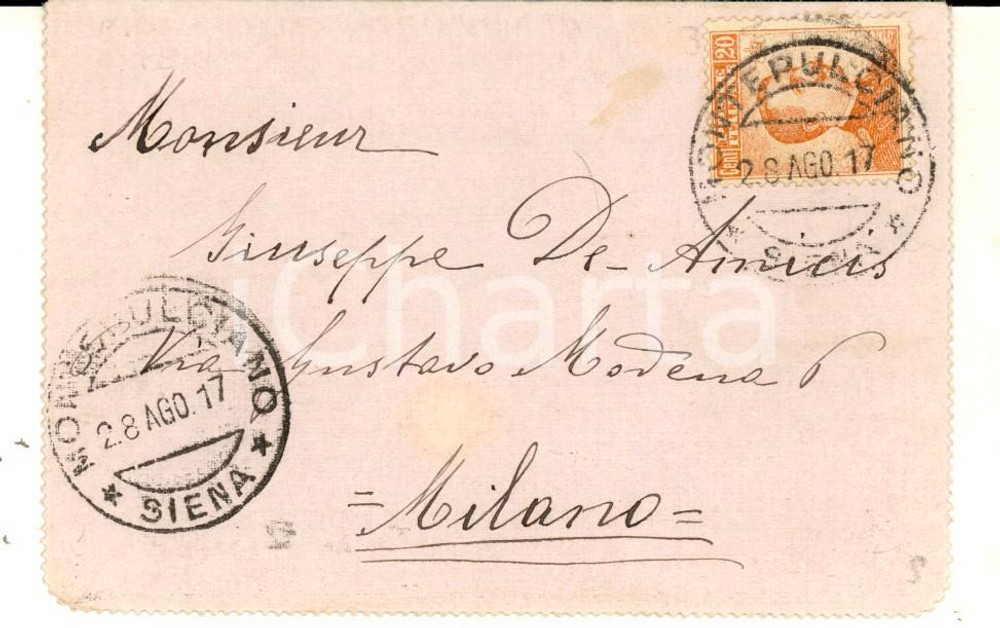 20
Cent
MONTEPULCIANO
28 AGO.17
* SIENA *
Monsieur
Giuseppe De-Amicis
Via Gustavo Modena 6
= Milano =
MONTEPULCIANO
28 AGO.17
* SIENA *
uCharta